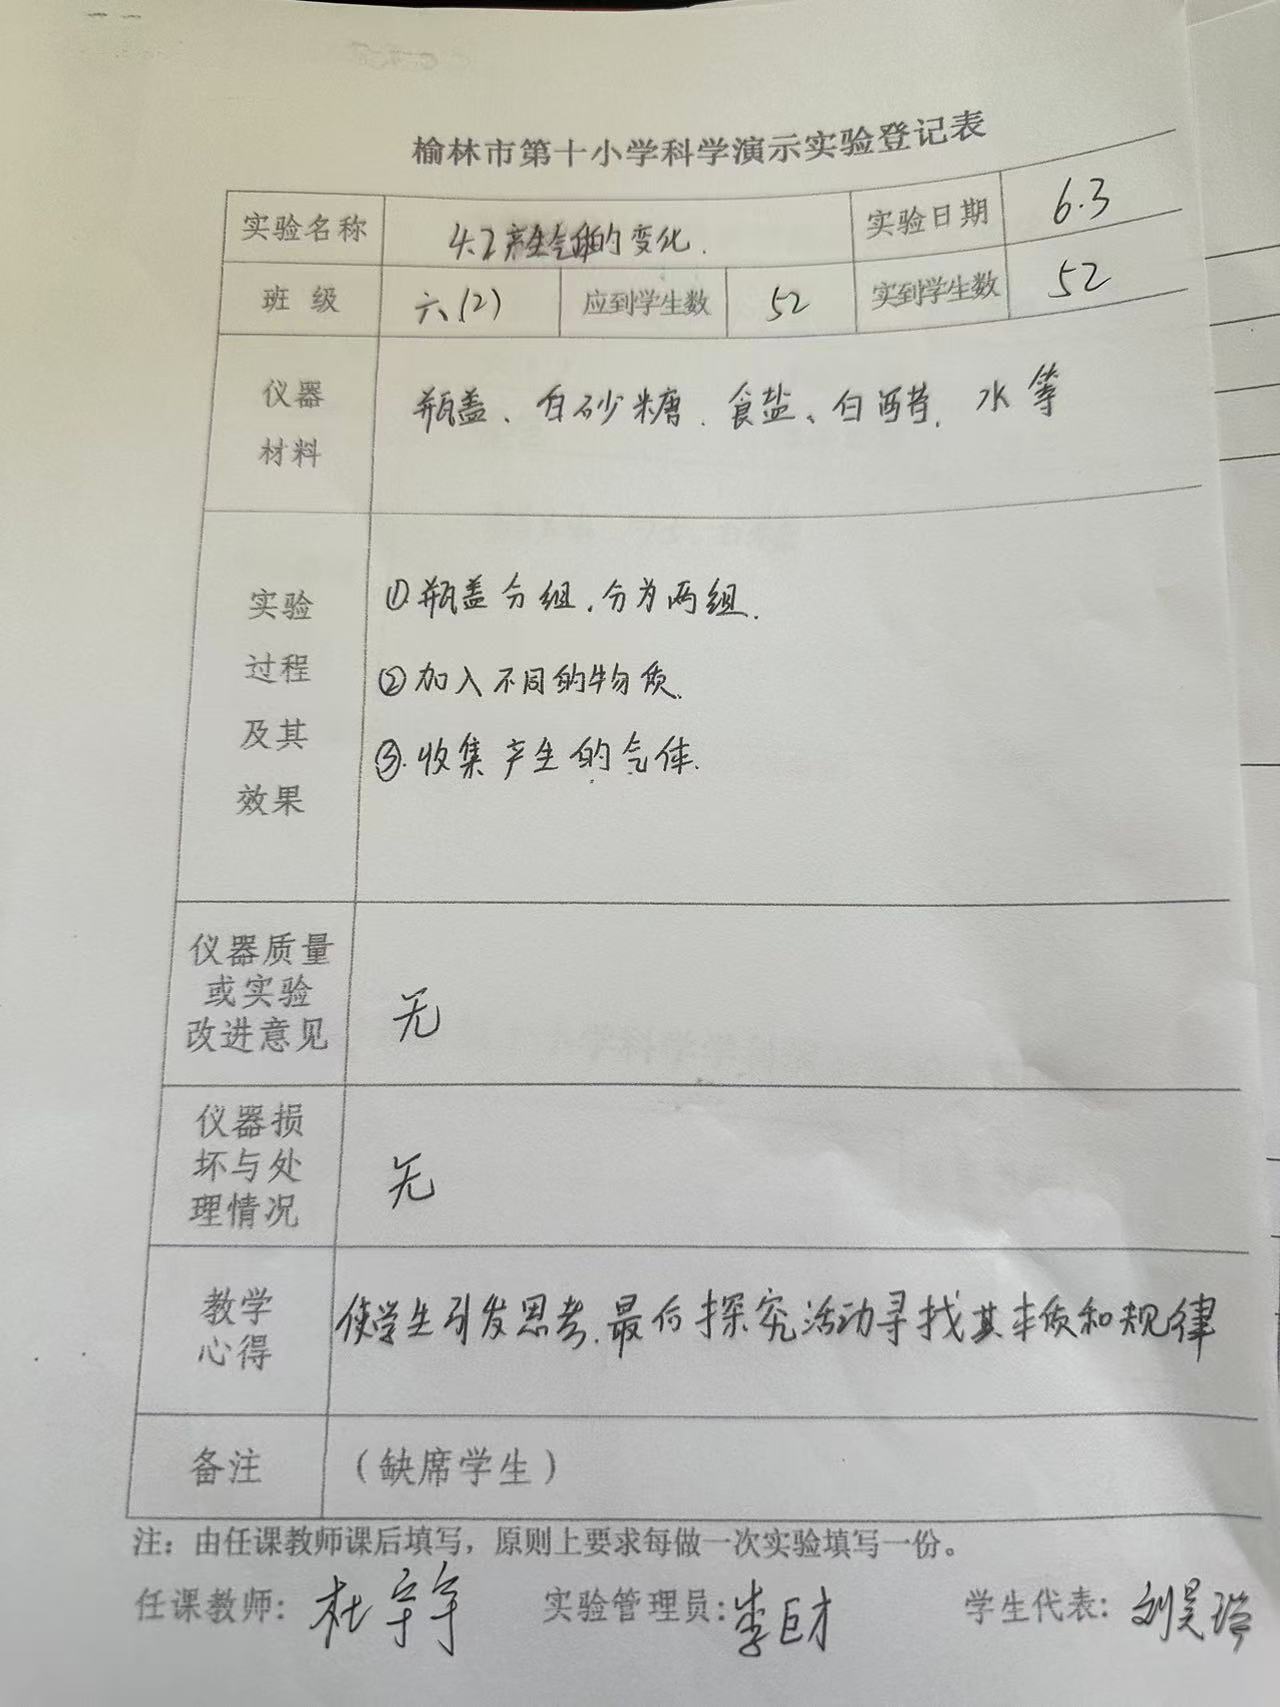 榆林市第十小学科学演示实验登记表
实验名称 4.2产生气体的变化. 实验日期 6.3
班级 六(2) 应到学生数 52 实到学生数 52
仪器
材料
瓶盖、白砂糖.食盐、白醋.水等
实验
过程
及其
效果
①瓶盖分组.分为两组.
②加入不同的物质.
③.收集产生的气体.
仪器质量
或实验
改进意见
无
仪器损
坏与处
理情况
无
教学
心得
使学生引发思考.最后探究活动寻找其本质和规律
备注 (缺席学生)
注：由任课教师课后填写，原则上要求每做一次实验填写一份。
任课教师: 杜宇 实验管理员: 李巨才 学生代表: 刘昊